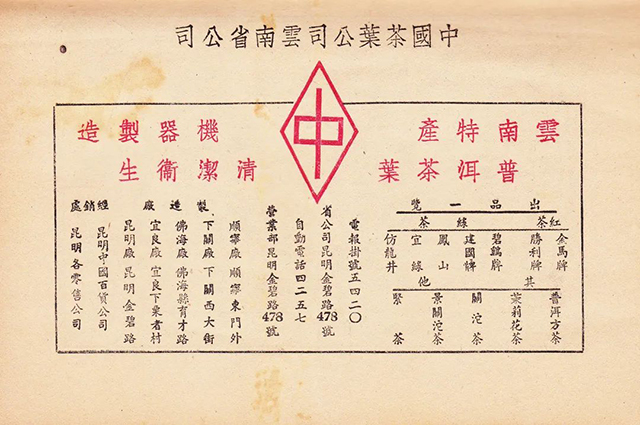 中國茶葉公司雲南省公司
中
雲南特產
普洱茶葉
機器製造
清潔衛生
出品一覽
紅茶
綠茶
金馬牌
勝利牌
碧鷄牌
建國牌
鳳山
宜綠
仿龍井
其他
普洱方茶
茉莉花茶
關沱茶
景關沱茶
緊茶
電報掛號五四二〇
省公司昆明金碧路478號
自動電話四二五七
營業部昆明金碧路478號
製造廠
順寧廠 順寧東門外
下關廠 下關西大街
佛海廠 佛海縣育才路
宜良廠 宜良下栗者村
昆明廠 昆明金碧路
經銷處
昆明中國百貨公司
昆明各零售公司